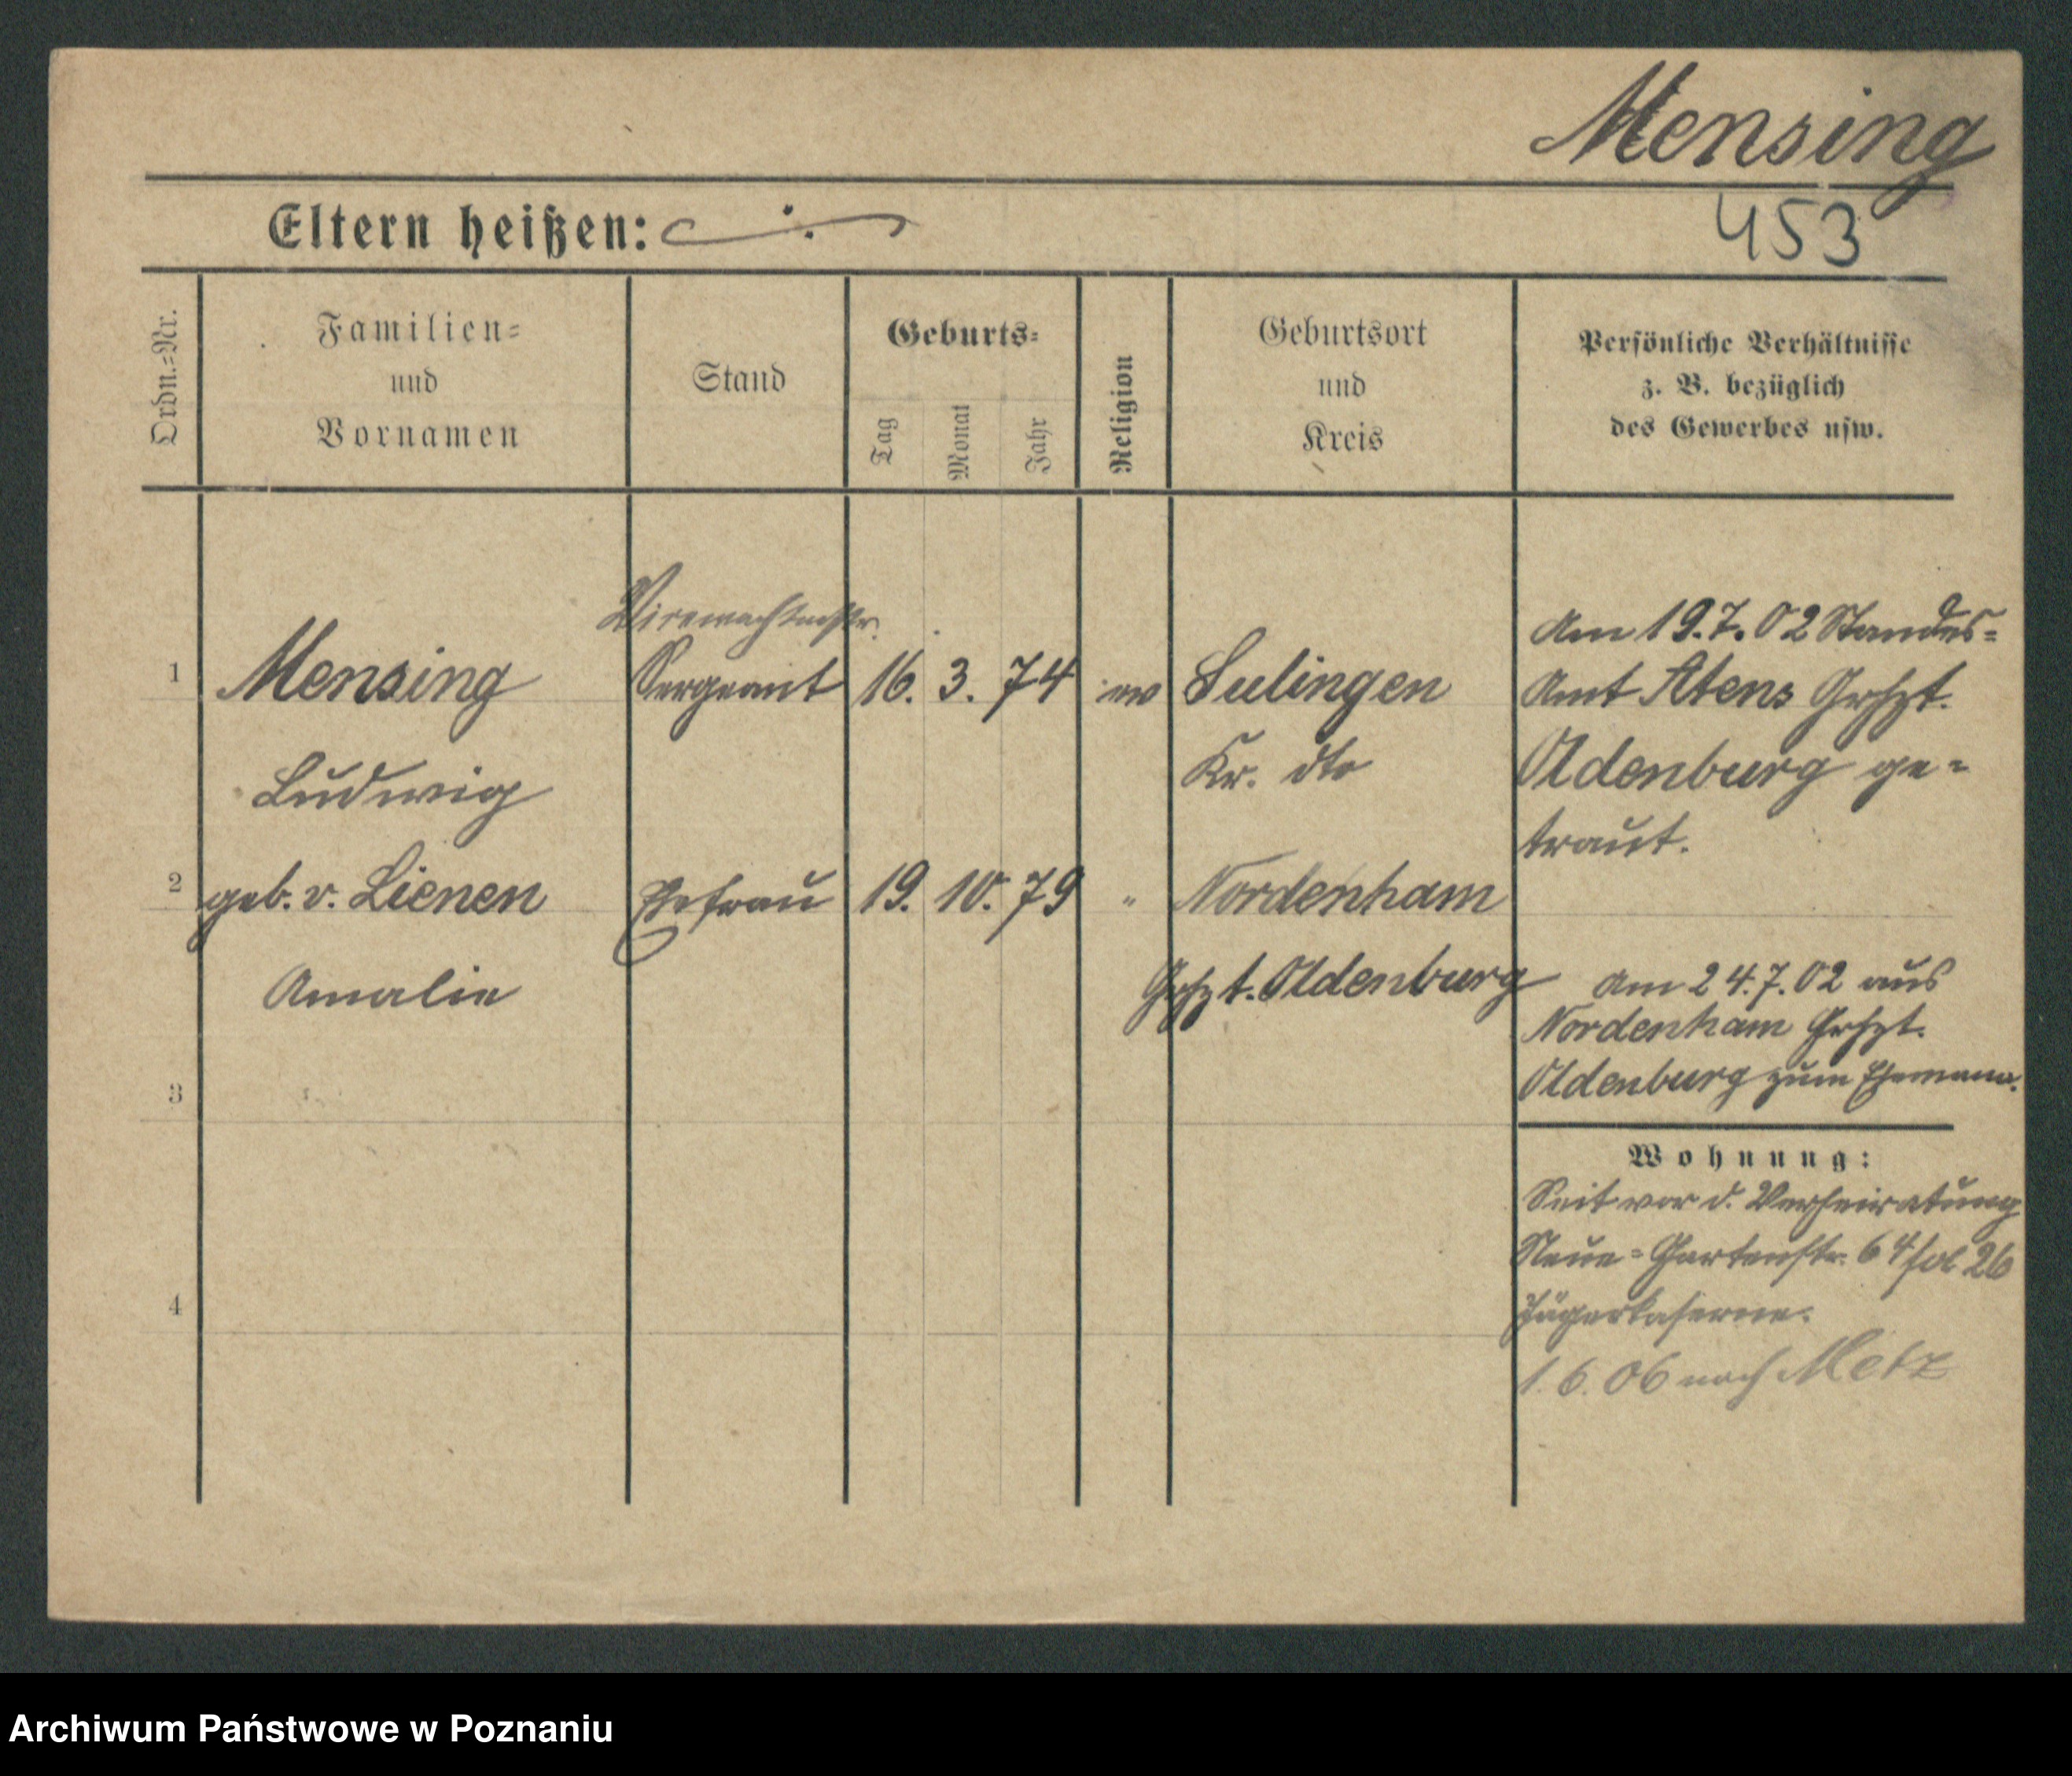 Mensing
453
Eltern heißen:
Ordn.=Nr.
Familien=
und
Vornamen
Stand
Geburts=
Tag
Monat
Jahr
Religion
Geburtsort
und
Kreis
Persönliche Verhältnisse
z. B. bezüglich
des Gewerbes usw.
Vizewachtmstr.
1 Mensing Sergeant 16. 3. 74 ev Sulingen
Ludwig
Kr. dto
Am 19.7.02 Standes=
Amt Atens Grhzt.
Oldenburg ge=
traut.
2 geb. v. Lienen Ehefrau 19. 10. 79 " Nordenham
Amalie
Grhzt. Oldenburg
Am 24.7.02 aus
Nordenham Grhzt.
Oldenburg zum Ehemann.
3
4
Wohnung:
Seit vor d. Verheiratung
Neue=Gartenstr. 64 fol 26
Jägerkaserne.
1.6.06 nach Metz
Archiwum Państwowe w Poznaniu